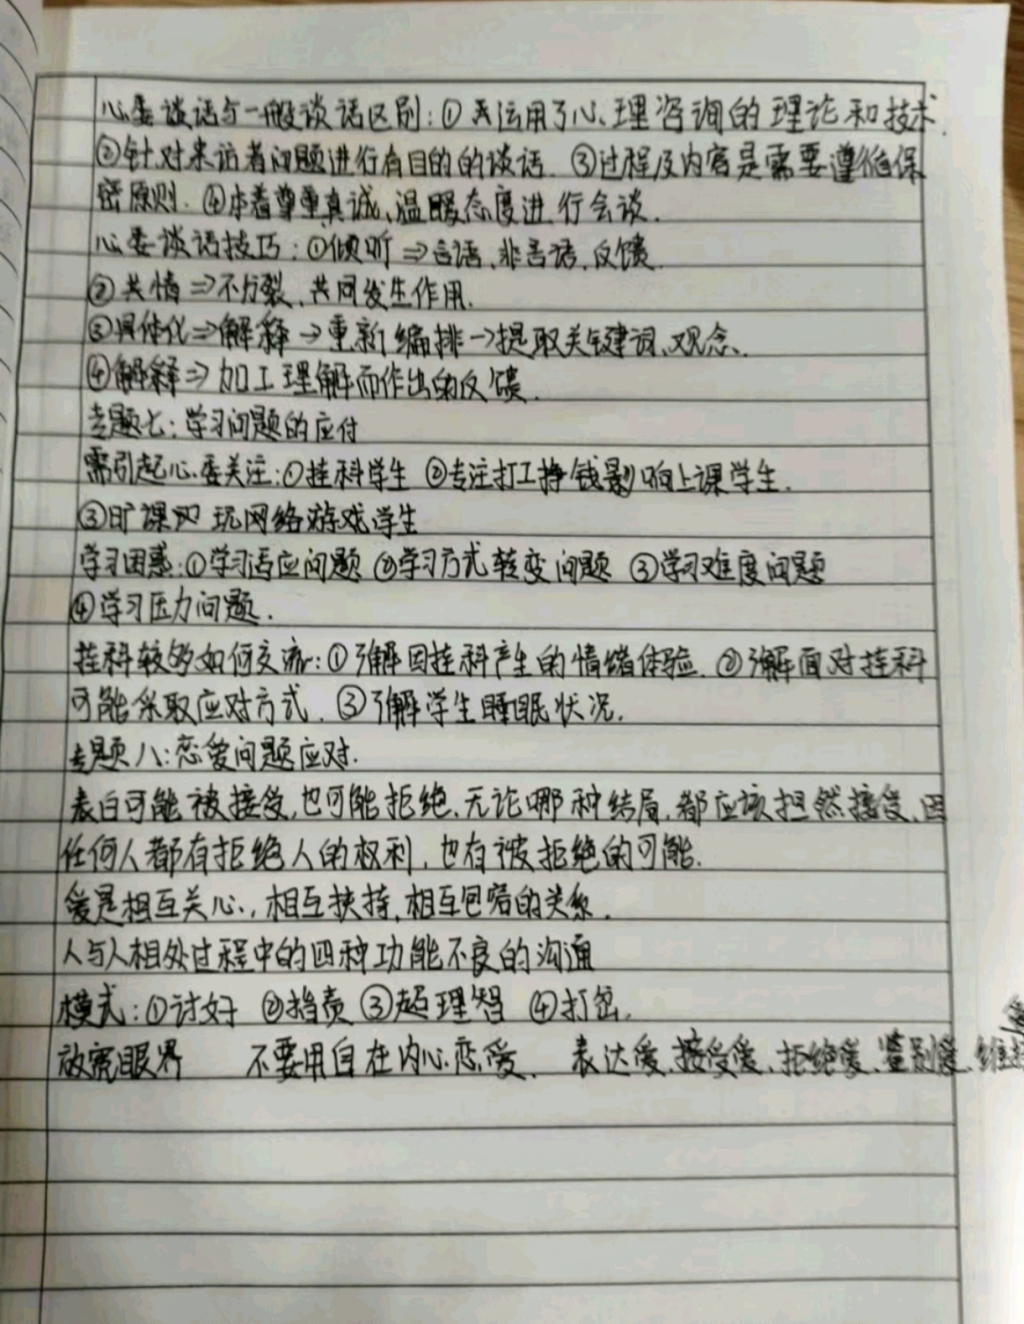 心委谈话与一般谈话区别：①其运用了心理咨询的理论和技术.
②针对来访者问题进行有目的的谈话.③过程及内容是需要遵循保
密原则.④本着尊重真诚、温暖态度进行会谈.
心委谈话技巧：①倾听⇒言语、非言语、反馈.
②共情⇒不分裂、共同发生作用.
③具体化⇒解释→重新编排→提取关键词、观念、
④解释⇒加工理解而作出的反馈.
专题七：学习问题的应付
需引起心委关注：①挂科学生 ②专注打工挣钱影响上课学生.
③旷课 玩网络游戏学生
学习困惑：①学习适应问题 ②学习方式转变问题 ③学习难度问题
④学习压力问题.
挂科较多如何交流：①了解因挂科产生的情绪体验.②了解面对挂科
可能采取应对方式.③了解学生睡眠状况.
专题八：恋爱问题应对.
表白可能被接受,也可能拒绝.无论哪种结局,都应该坦然接受,因
任何人都有拒绝人的权利,也有被拒绝的可能.
爱是相互关心,相互扶持,相互包容的关系.
人与人相处过程中的四种功能不良的沟通
模式：①讨好 ②指责 ③超理智 ④打岔.
放宽眼界 不要用自在内心恋爱. 表达爱、接受爱、拒绝爱、鉴别爱、维持